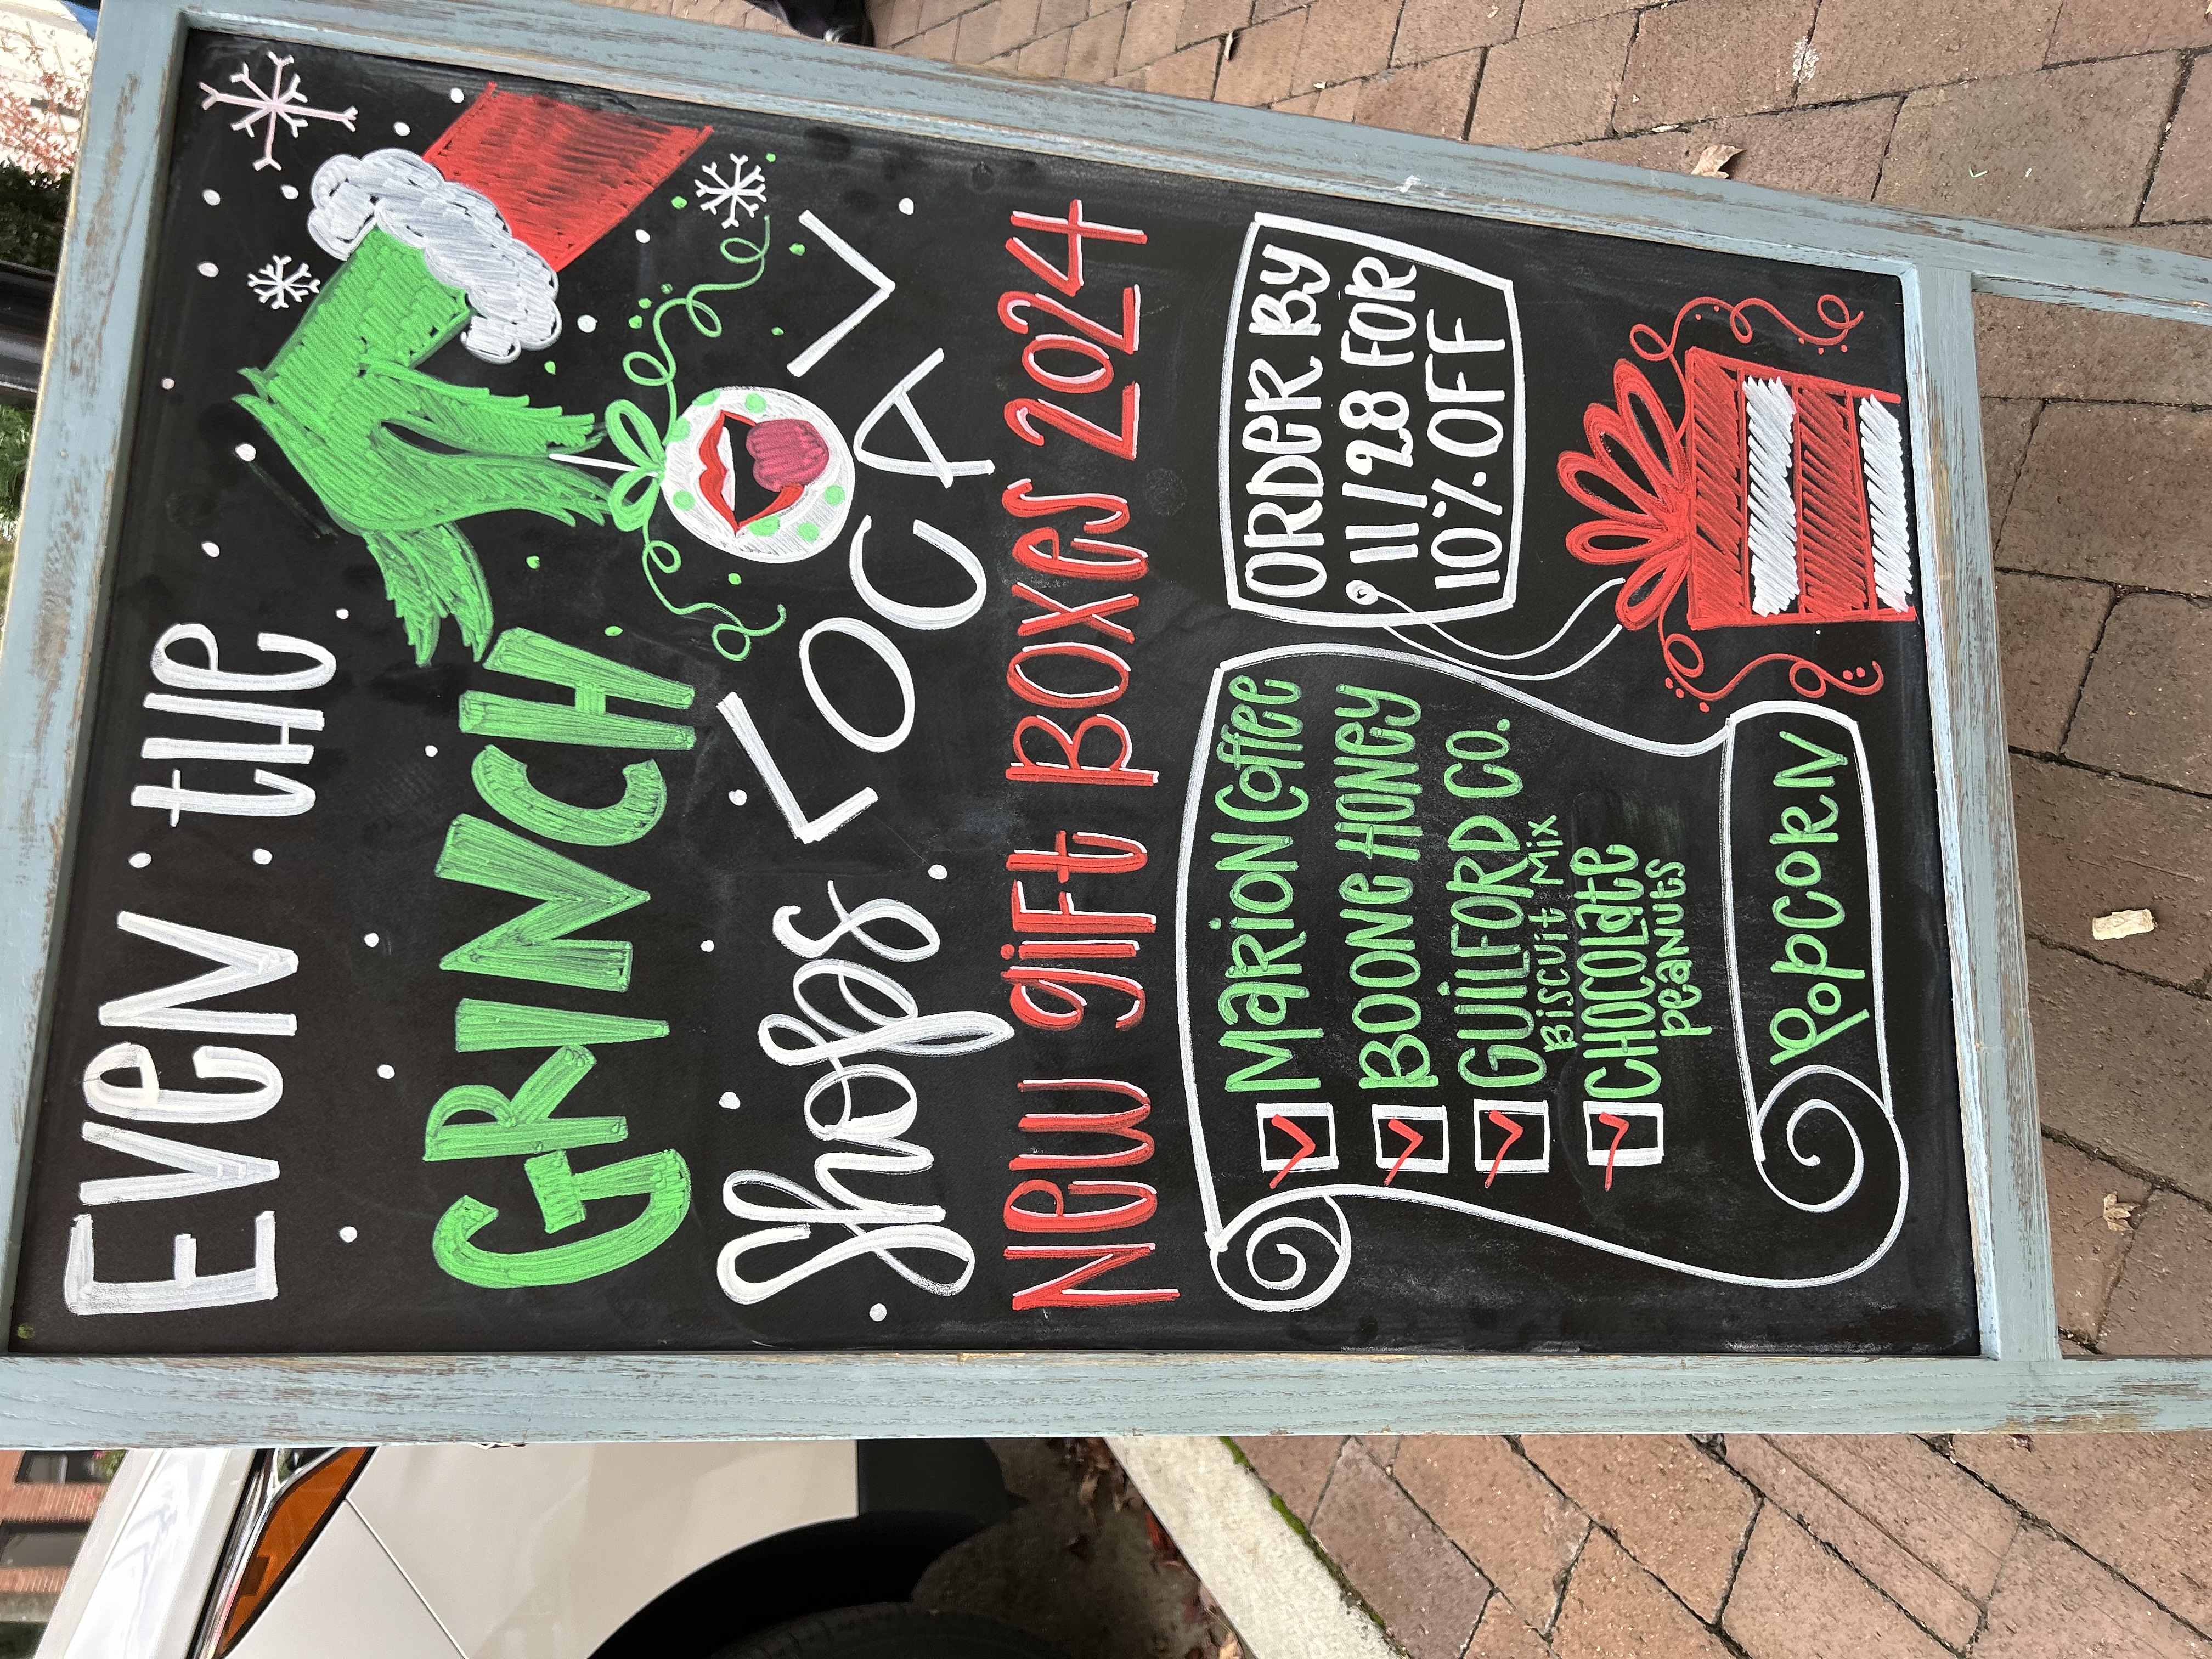 EVEN the
GRINCH
Shops LOCAL
New gift Boxes 2024
Marion Coffee
Boone Honey
Guilford Co.
Biscuit Mix
Chocolate
peanuts
Popcorn
ORDER BY
11/28 FOR
10% OFF